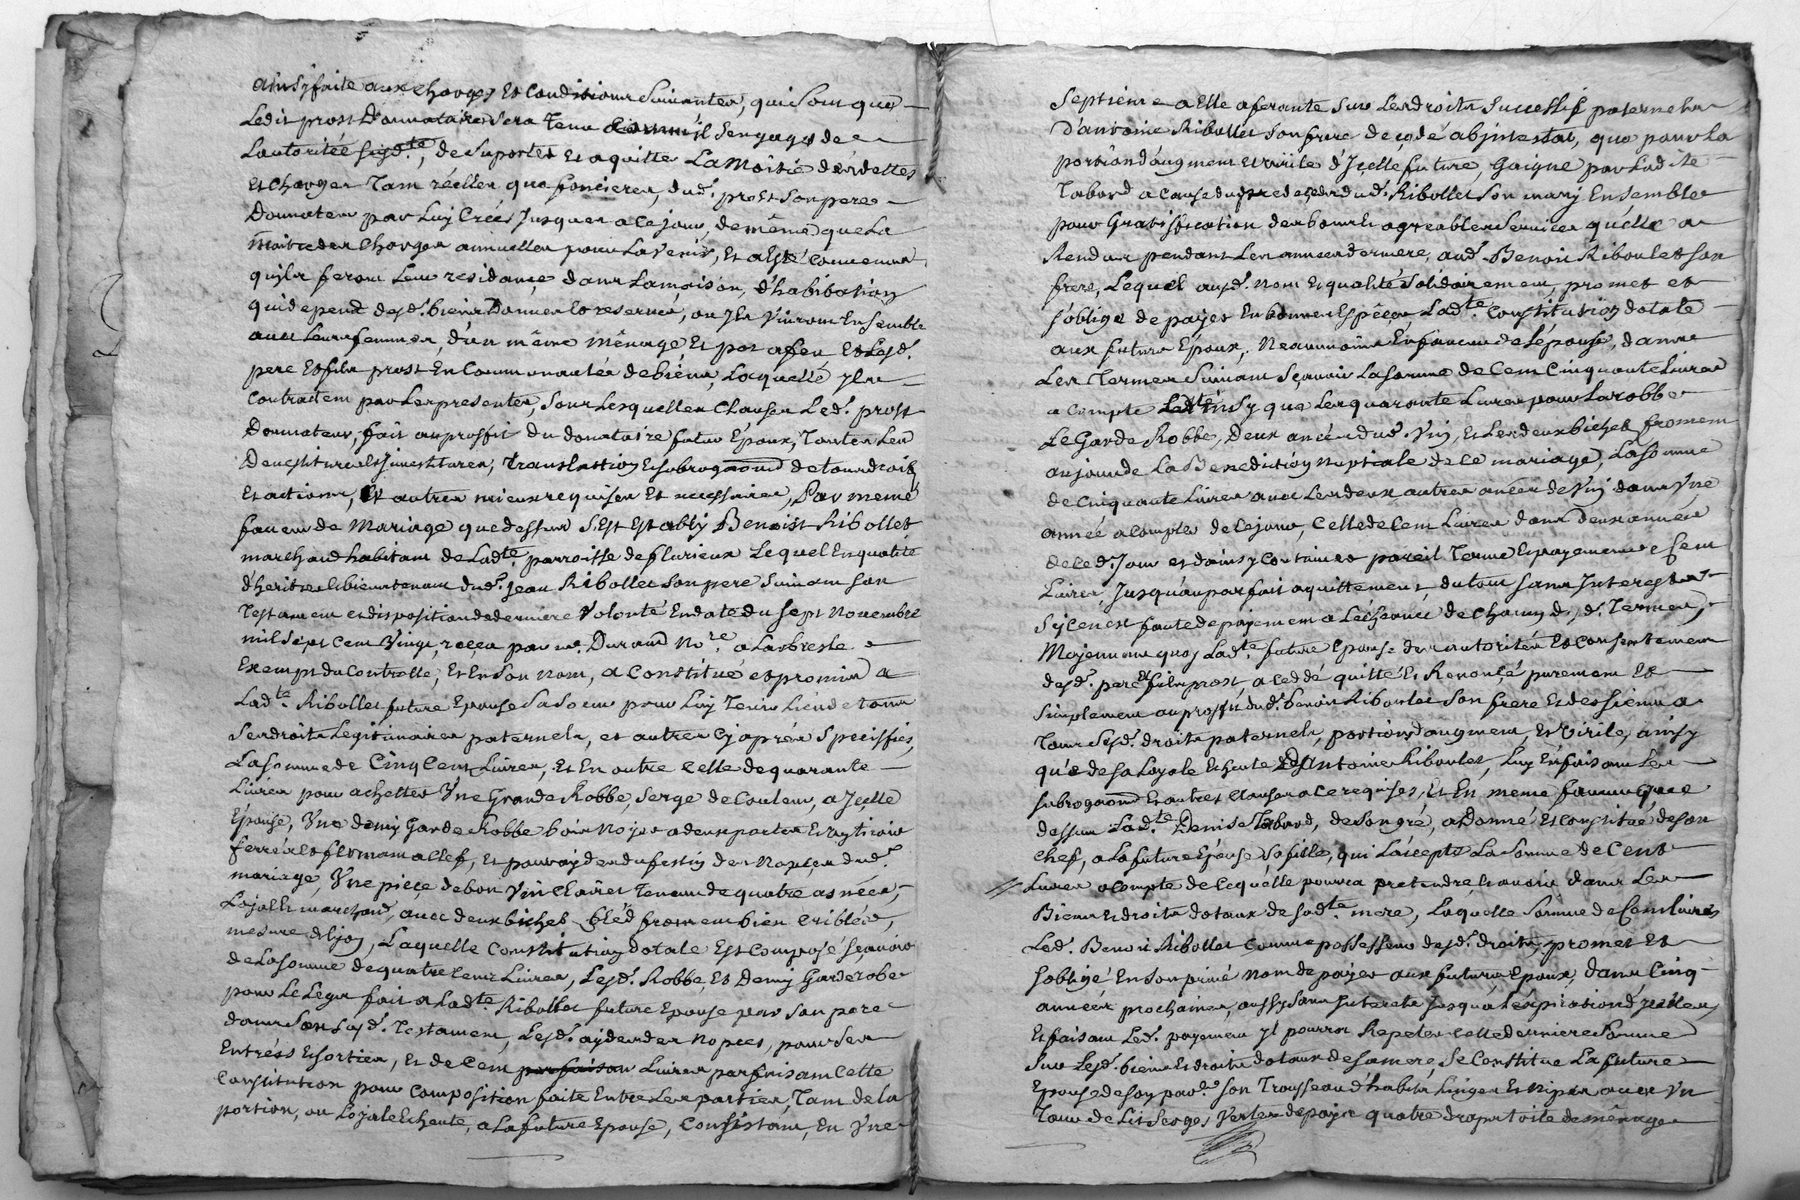 ainsy faite aux charges et conditions suivantes, qui sont que
Ledit prost Donnataire sera tenu comme il s'engage de
L'autoritée susd.te, de suporter et aquitter La Moitié des dettes
et charges tant réelles que foncieres, dud. prost son pere
Donnateur par Luy Créés jusques a ce jour, de même que La
moitié des charges annuelles pour L'avenir, et a esté convenu
qu'ils feront Leur residance dans La maison d'habitation
qui depend desd. biens Donnés et reservés, ou ils vivront Ensemble
avec Leurs femmes, d'un même mênage et pot a feu et Lesd.
pere et fils prost en Communautée de biens, Laquelle ils
contractent par Les presentes, sous Lesquelles Clauses Led. prost
Donnateur, fait au proffit du donataire futur Epoux, toutes Les
Devestitures et Investitures, translation et subrogaon de tous droits
et actions, et autres mieux requises et necessaires, Par meme
faveur de Mariage que dessus S'est Etably Benoist Ribollet
marchand habitant de Lad.te parroisse de fleurieux Lequel En qualité
d'heritier et bientenant dud. Jean Ribollet son pere suivant son
Testament et disposition de derniere volonté En date du sept Novembre
mil sept cent vingt, reçeu par me. Durand No.re a Larbresle
Exempt du Controlle, et En son nom, a Constitué et promis a
Lad.te Ribollet future Epouse sa soeur pour Luy Tenir Lieu de tous
ses droits Legitimaires paternels, et autres cy après specifiés,
La somme de Cinq Cent Livres, et En outre celle de quarante
Livres pour achetter Une Grande Robbe, serge de Couleur, a Icelle
Epouse, Une demy Garde Robbe bois Noyer a deux portes et un tiroir
ferrée et fermant a Clef, et pour ayder au festin des Nopces dud.
mariage, Une pièce de bon vin Clairet Tenant de quatre asnées,
Loyal et marchand, avec deux bichets bled froment bien criblés,
mesure de Lyon, Laquelle Constitution dotale est Composé sçavoir
de La somme de quatre Cents Livres, Lesd. Robbe, et Demy Garderobe
pour Le Legs fait a Lad.te Ribollet future Epouse par son pere
dans son susd. Testament, Lesd. aydes des Nopces, pour ses
Entrées et sorties, et de Cent Livres parfaisant Cette
Constitution pour Composition faite Entre Les parties, Tant de la
portion, ou Loyale Echeute, a La future Epouse, Consistant, En Une
Septieme a Elle aferante sur Les droits successifs paternels
d'antoine Ribollet son frere decedé abintestat, que pour La
portion d'augment et virile d'Icelle future, Gaigné par Ladite
Tabard a cause du predecedé dud. Ribollet son mary Ensemble
pour Gratiffication des bons et agreables services qu'elle a
Rendus pendant Les années derniere, aud. Benoit Riboulet son
frere, Lequel ausd. Nom et qualité solidairement, promet et
s'oblige de payer En bonnes Espèces Lad.te Constitution dotale
aux futurs Epoux, Neanmoins En faveur de L'épouse, dans
Les Termes suivant sçavoir La somme de Cent Cinquante Livres
a compte ainsy que Les quarante Livres pour La robbe
Le Garde Robbe, Deux anées dud. Vin, et Les deux bichets froment
au jour de La Benediction Nuptiale de ce mariage, La somme
de Cinquante Livres avec Les deux autres anées de Vin dans Une
année a Compter de ce jour, Celle de Cent Livres dans deux années
de ced. Jour et d'ainsy Continuer pareil Terme et payement de Cent
Livres Jusqu'au parfait aquittement du tout sans Interest
sy ce n'est faute de payement a L'echeance de chacun desd. Termes,
Moyennant quoy Lad.te future Epouse de L'autoritée et Consentement
desd. pere et fils prost, a Cedé quitté et Renoncé purement et
simplement au proffit dud. benoit Riboulet son frere et des siens a
Tous susd. droits paternels, portion d'augment, et Virile, ainsy
que de sa Loyale Echeute dud. Antoine Riboulet, Luy En faisant Les
subrogaon et autres Clauses a ce requises, et En meme faveur que
dessus Lad.te Denise Tabard, de son gré, a donné et Constitué de son
chef, a La future Epouse sa fille, qui L'accepte La somme de Cent
Livres a compte de ce qu'elle pourra pretendre et avoir dans Les
Biens et droits dotaux de sad.te mere, Laquelle somme de Cent Livres
Led. Benoit Ribollet comme possesseur desd. droits promet et
s'oblige En son privé Nom de payer aux futurs Epoux, dans Cinq
années prochaines, aussy sans Interets jusqu'a L'expiration d'Icelles,
Et faisant Led. payement il pourra Repeter Cette derniere somme
sur Lesd. biens et droits dotaux de sa mere, se Constitue La future
Epouse de son par.er son Trousseau d'habits, Linges et Nipes avec Un
Tour de Lit serges Vertes de païs quatre draps toile de mênage